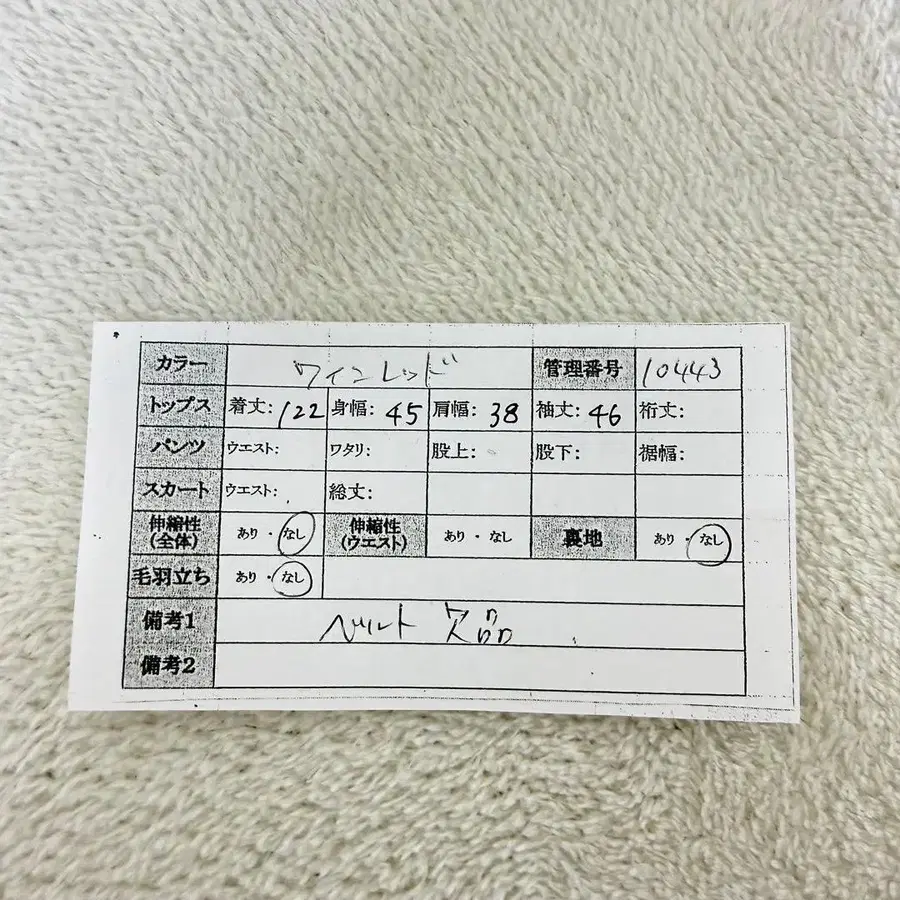 カラー ワインレッド 管理番号 10443
トップス 着丈: 122 身幅: 45 肩幅: 38 袖丈: 46 裄丈:
パンツ ウエスト: ワタリ: 股上: 股下: 裾幅:
スカート ウエスト: 総丈:
伸縮性(全体) あり・なし 伸縮性(ウエスト) あり・なし 裏地 あり・なし
毛羽立ち あり・なし
備考1 ベルト 欠品
備考2